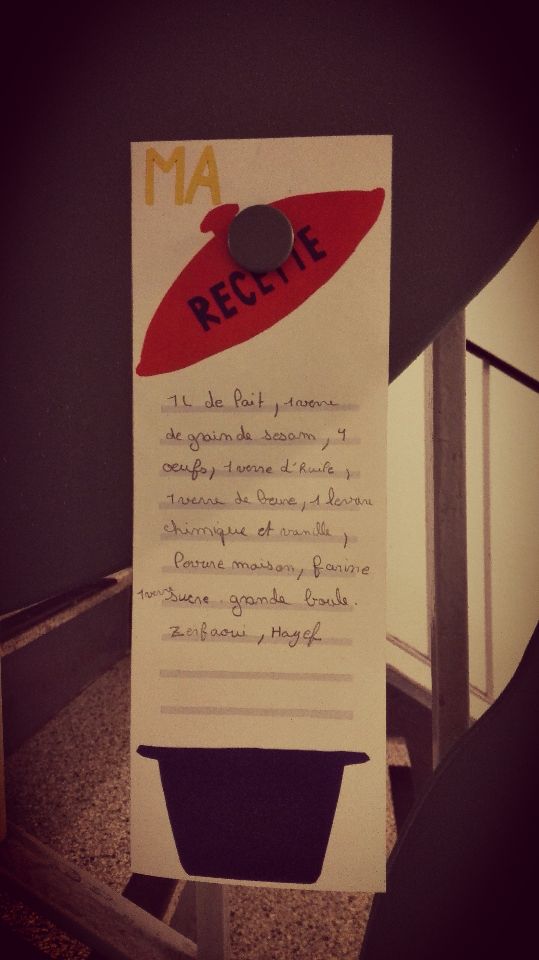 MA
RECETTE
1L de lait, 1 verre
de grain de sesam, 4
oeufs, 1 verre d'huile,
1 verre de beure, 1 levure
chimique et vanille,
levure maison, farine
1 verre sucre. grande boule.
Zerfaoui, Hayef